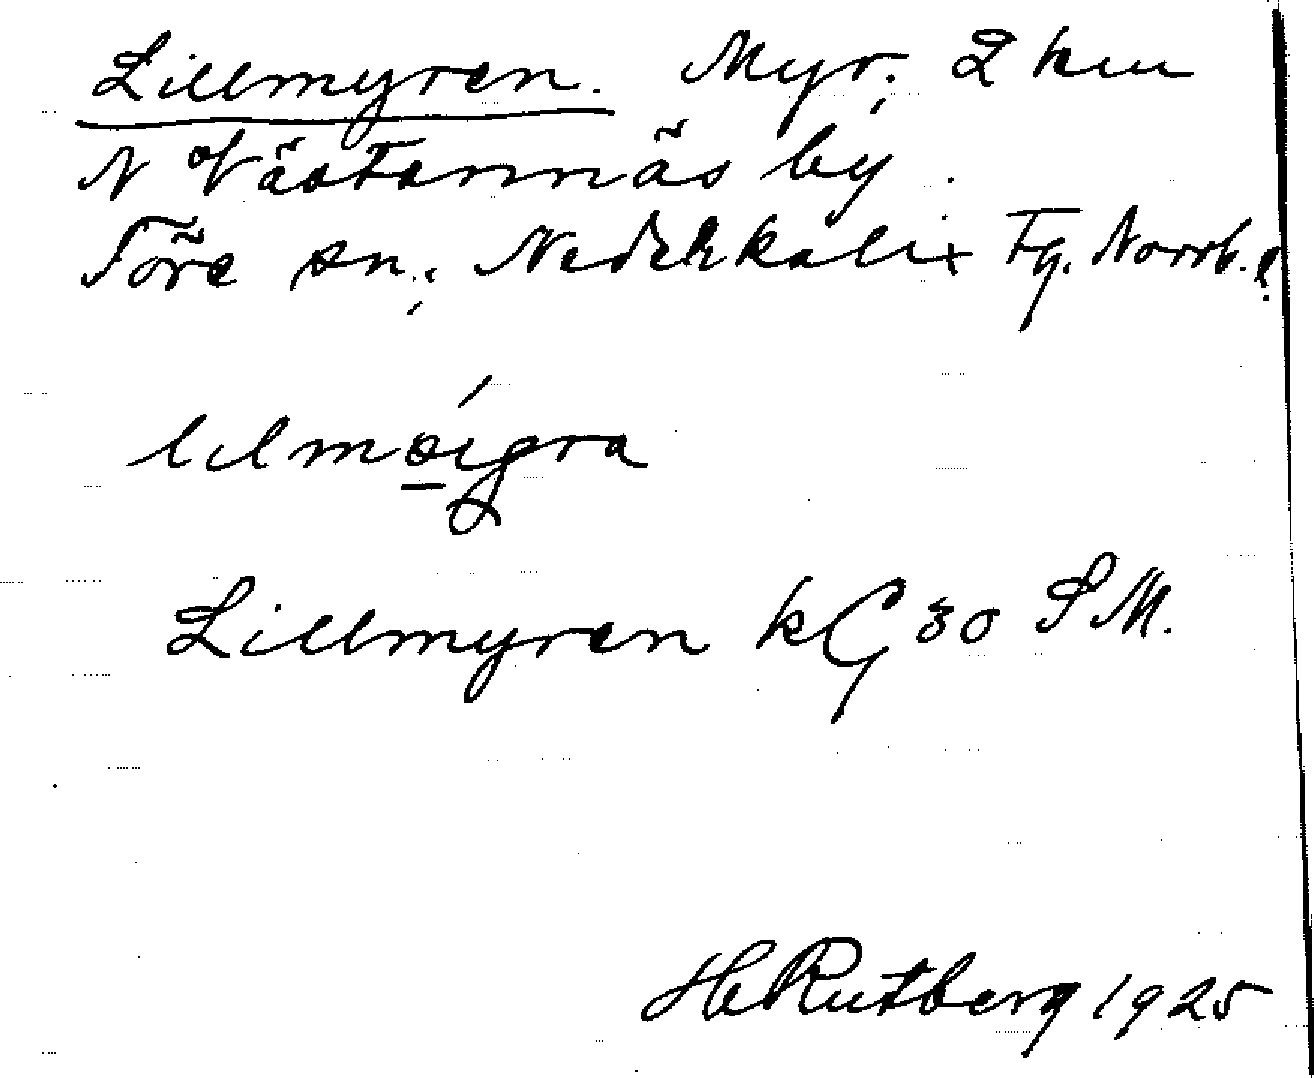 Lillmyren. Myr. 2 km
N Västannäs by.
Töre sn., Nederkalix Tg. Norrb. l.
lilmøigra
Lillmyren kG 30 SM.
H Rutberg 1925